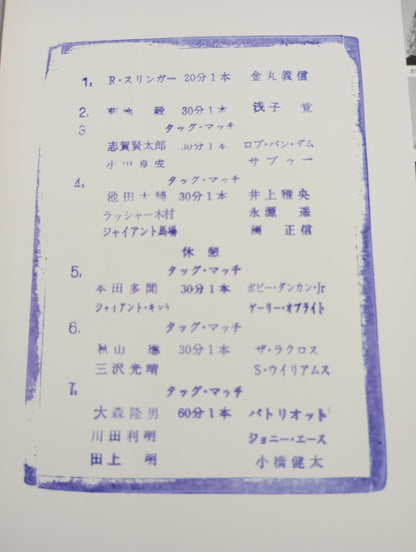 1, R・スリンガー 20分1本 金丸義信
2. 菊地 毅 30分1本 浅子 覚
3 タッグ・マッチ
志賀賢太郎 30分1本 ロブ・バン・ダム
小川良成 サブゥー
4, タッグ・マッチ
池田大輔 30分1本 井上雅央
ラッシャー木村 永源 遥
ジャイアント馬場 渕 正信
休憩
5, タッグ・マッチ
本田多聞 30分1本 ボビー・ダンカン・Jr
ジャイアント・キマラ ゲーリー・オブライト
6. タッグ・マッチ
秋山 準 30分1本 ザ・ラクロス
三沢光晴 S・ウイリアムス
7. タッグ・マッチ
大森隆男 60分1本 パトリオット
川田利明 ジョニー・エース
田上 明 小橋健太